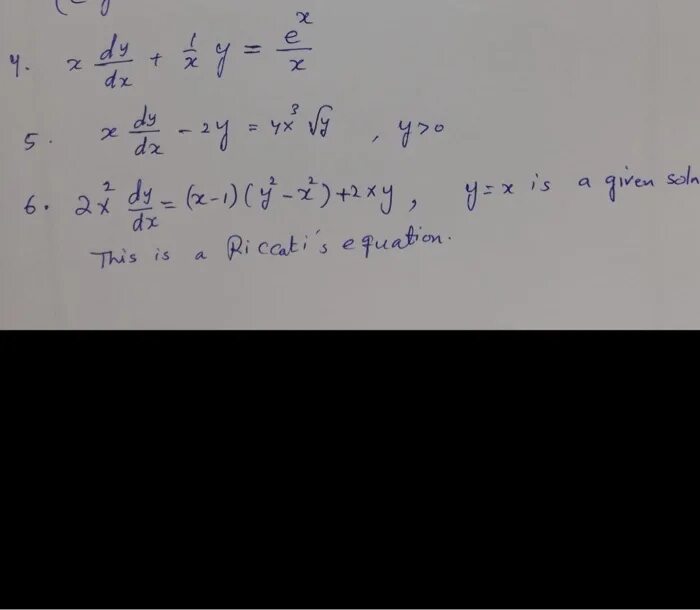 4. x dy/dx + 1/x y = e^x/x
5. x dy/dx - 2y = 4x^3 √y , y>0
6. 2x^2 dy/dx = (x-1)(y^2-x^2)+2xy, y=x is a given soln
This is a Riccati's equation.